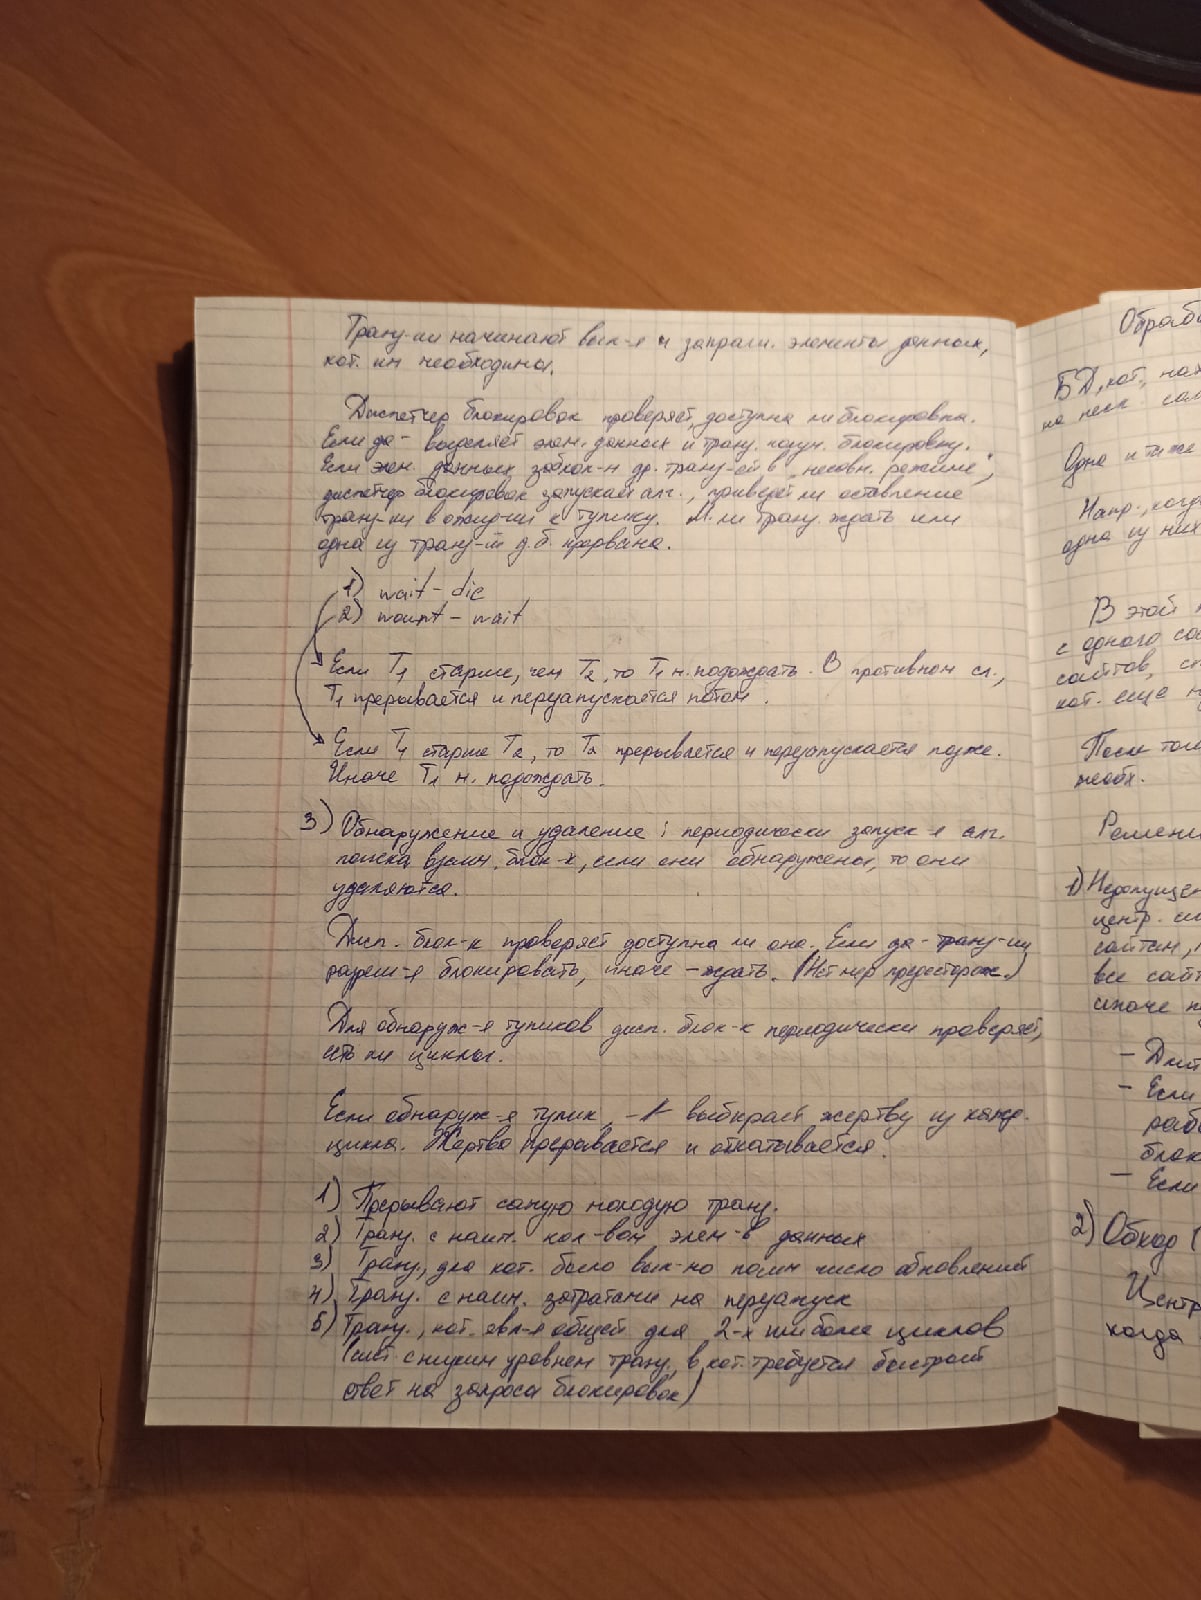 Транз-ии начинают вып-я и запраш. элементы данных,
кот. им необходимы.
Диспетчер блокировок проверяет, доступна ли блокировка.
Если да - выделяет элем. данных и транз. получ. блокировку.
Если элем. данных заблок-н др. транз-ей в "несовм. режиме",
диспетчер блокировок запускает алг., приведёт ли оставление
транз-ии в ожид-ии к тупику. М. ли транз. ждать или
одна из транз-й д.б. прервана.
1) wait - die
2) wount - wait
Если T1 старше, чем T2, то T1 м. подождать. В противном сл.,
T1 прерывается и перезапускается потом.
Если T1 старше T2, то T2 прерывается и перезапускается позже.
Иначе T1 м. подождать.
3) Обнаружение и удаление: периодически запуск-я алг.
поиска взаим. блок-к, если они обнаружены, то они
удаляются.
Дисп. блок-к проверяет доступна ли она. Если да - транз-ии
разреш-я блокировать, иначе - ждать. (Нет мер предосторож.)
Для обнаруж-я тупиков дисп. блок-к периодически проверяет,
есть ли циклы.
Если обнаруж-я тупик, выбирает жертву из кажд.
цикла. Жертва прерывается и откатывается.
1) Прерывают самую молодую транз.
2) Транз. с наим. кол-вом элем-в данных
3) Транз., для кот. было вып-но наим число обновлений
4) Транз. с наим. затратами на перезапуск
5) Транз., кот. явл-я общей для 2-х или более циклов
(сист. с низким уровнем транз., в кот. требуется быстрый
ответ на запросы блокировок)
БД, кот.
Одна и та же
Напр., когда
одна из них
В этой
с одного
сайтов,
кот. ещё
После
необх.
1)
центр.
сайтам,
все
иначе
-
- Если
- Если
2) Обход (
Центр
когда